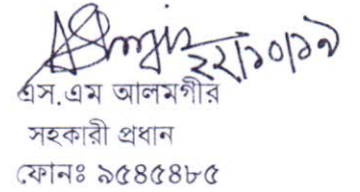 ২২/১০/১৯
এস.এম আলমগীর
সহকারী প্রধান
ফোনঃ ৯৫৪৫৪৮৫